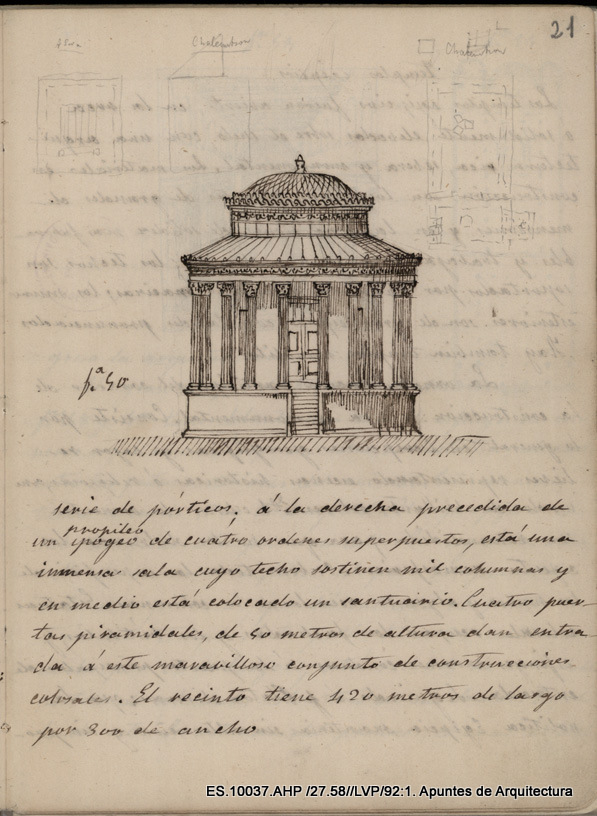 21
Chalcidicon
fª. 40
serie de pórticos; á la derecha precedida de
propileo
un ipógeo de cuatro ordenes superpuestos, está una
inmensa sala cuyo techo sostienen mil columnas y
en medio está colocado un santuario. Cuatro puer-
tas piramidales, de 50 metros de altura dan entra-
da á este maravilloso conjunto de construcciones
colosales. El recinto tiene 420 metros de largo
por 300 de ancho
ES.10037.AHP /27.58//LVP/92:1. Apuntes de Arquitectura